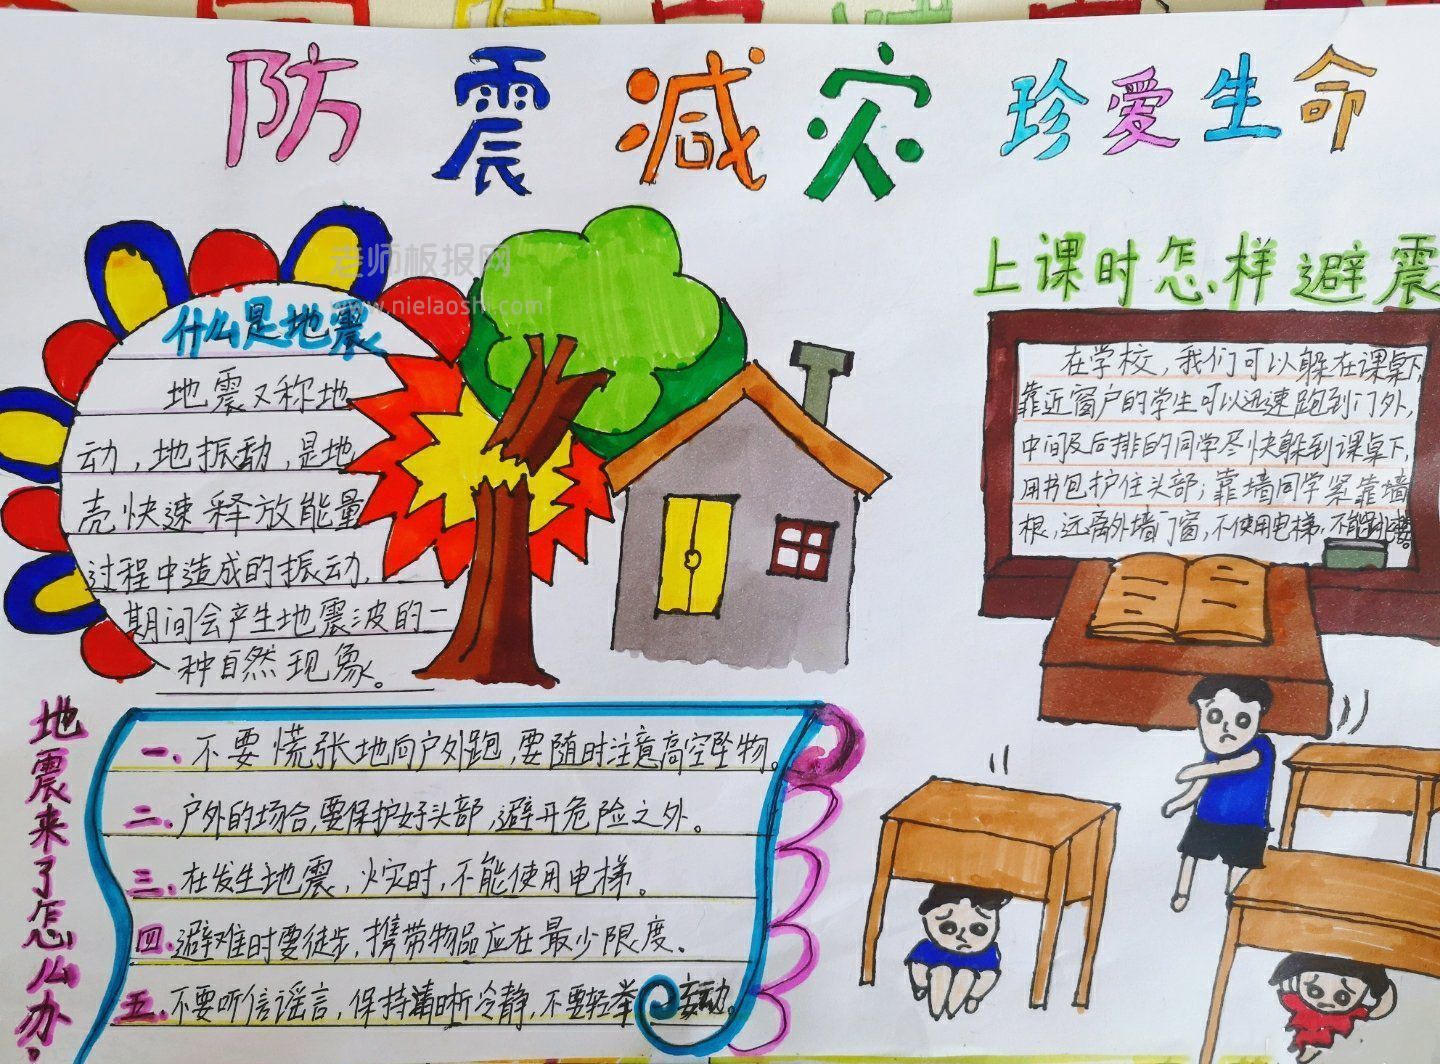 防震减灾 珍爱生命
老师板报网
www.nielaoshi.com
什么是地震
地震又称地
动，地振动，是地
壳快速释放能量
过程中造成的振动，
期间会产生地震波的一
种自然现象。
上课时怎样避震
在学校，我们可以躲在课桌下，
靠近窗户的学生可以迅速跑到门外，
中间及后排的同学尽快躲到课桌下，
用书包护住头部；靠墙同学紧靠墙
根，远离外墙门窗，不使用电梯，不能跳楼。
地震来了怎么办？
一、不要慌张地向户外跑，要随时注意高空坠物。
二、户外的场合，要保护好头部，避开危险之外。
三、在发生地震，火灾时，不能使用电梯。
四、避难时要徒步，携带物品应在最少限度。
五、不要听信谣言，保持清晰冷静，不要轻举妄动。